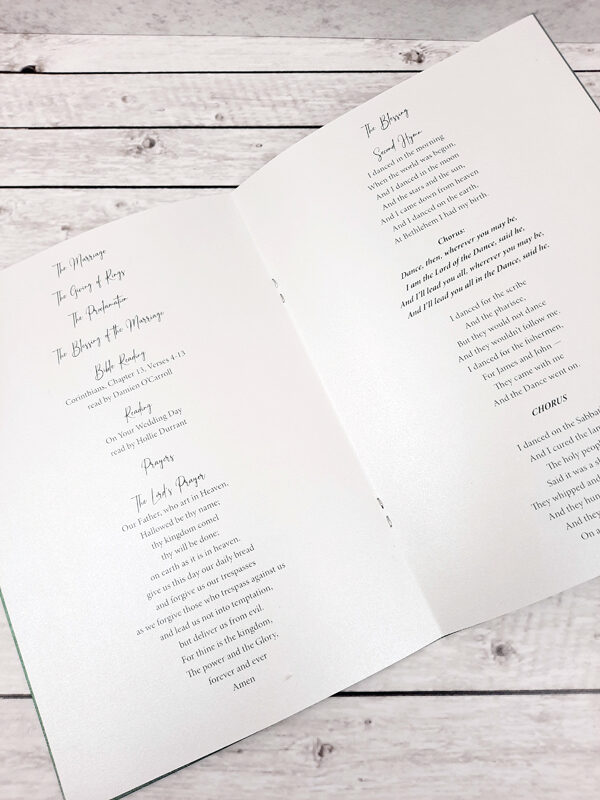 The Marriage
The Giving of Rings
The Proclamation
The Blessing of the Marriage
Bible Reading
Corinthians, Chapter 13, Verses 4-13
read by Damien O'Carroll
Reading
On Your Wedding Day
read by Hollie Durrant
Prayers
The Lord's Prayer
Our Father, who art in Heaven,
Hallowed be thy name;
thy kingdom comel
thy will be done;
on earth as it is in heaven.
give us this day our daily bread
and forgive us our trespasses
as we forgive those who trespass against us
and lead us not into temptation,
but deliver us from evil.
For thine is the kingdom,
The power and the Glory.
forever and ever
Amen
The Blessing
Second Hymn
I danced in the morning
When the world was begun,
And I danced in the moon
And the stars and the sun,
And I came down from heaven
And I danced on the earth,
At Bethlehem I had my birth.
Chorus:
Dance, then, wherever you may be,
I am the Lord of the Dance, said he,
And I'll lead you all, wherever you may be,
And I'll lead you all in the Dance, said he.
I danced for the scribe
And the pharisee,
But they would not dance
And they wouldn't follow me.
I danced for the fishermen,
For James and John —
They came with me
And the Dance went on.
CHORUS
I danced on the Sabbat
And I cured the lam
The holy peopl
Said it was a sh
They whipped and
And they hun
And they
On a